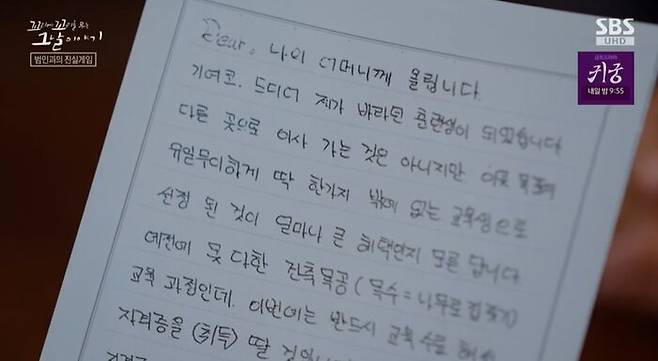 꼬리에 꼬리를 무는
그날 이야기
범인과의 진실게임
SBS
UHD
금토드라마
귀궁
내일 밤 9:55
Dear. 나의 어머니께 올립니다.
기여코. 드디어 제가 바라던 훈련생이 되었습니다
다른 곳으로 이사 가는 것은 아니지만 이곳 목포에
유일무이하게 딱 한가지 밖에 없는 교육생으로
선정 된 것이 얼마나 큰 혜택인지 모른 답니다
예전에 못 다한 건축목공 (목수 = 나무로 집 짓기)
교육 과정인데. 이번에는 반드시 교육 수료
자격증을 (취득) 딸